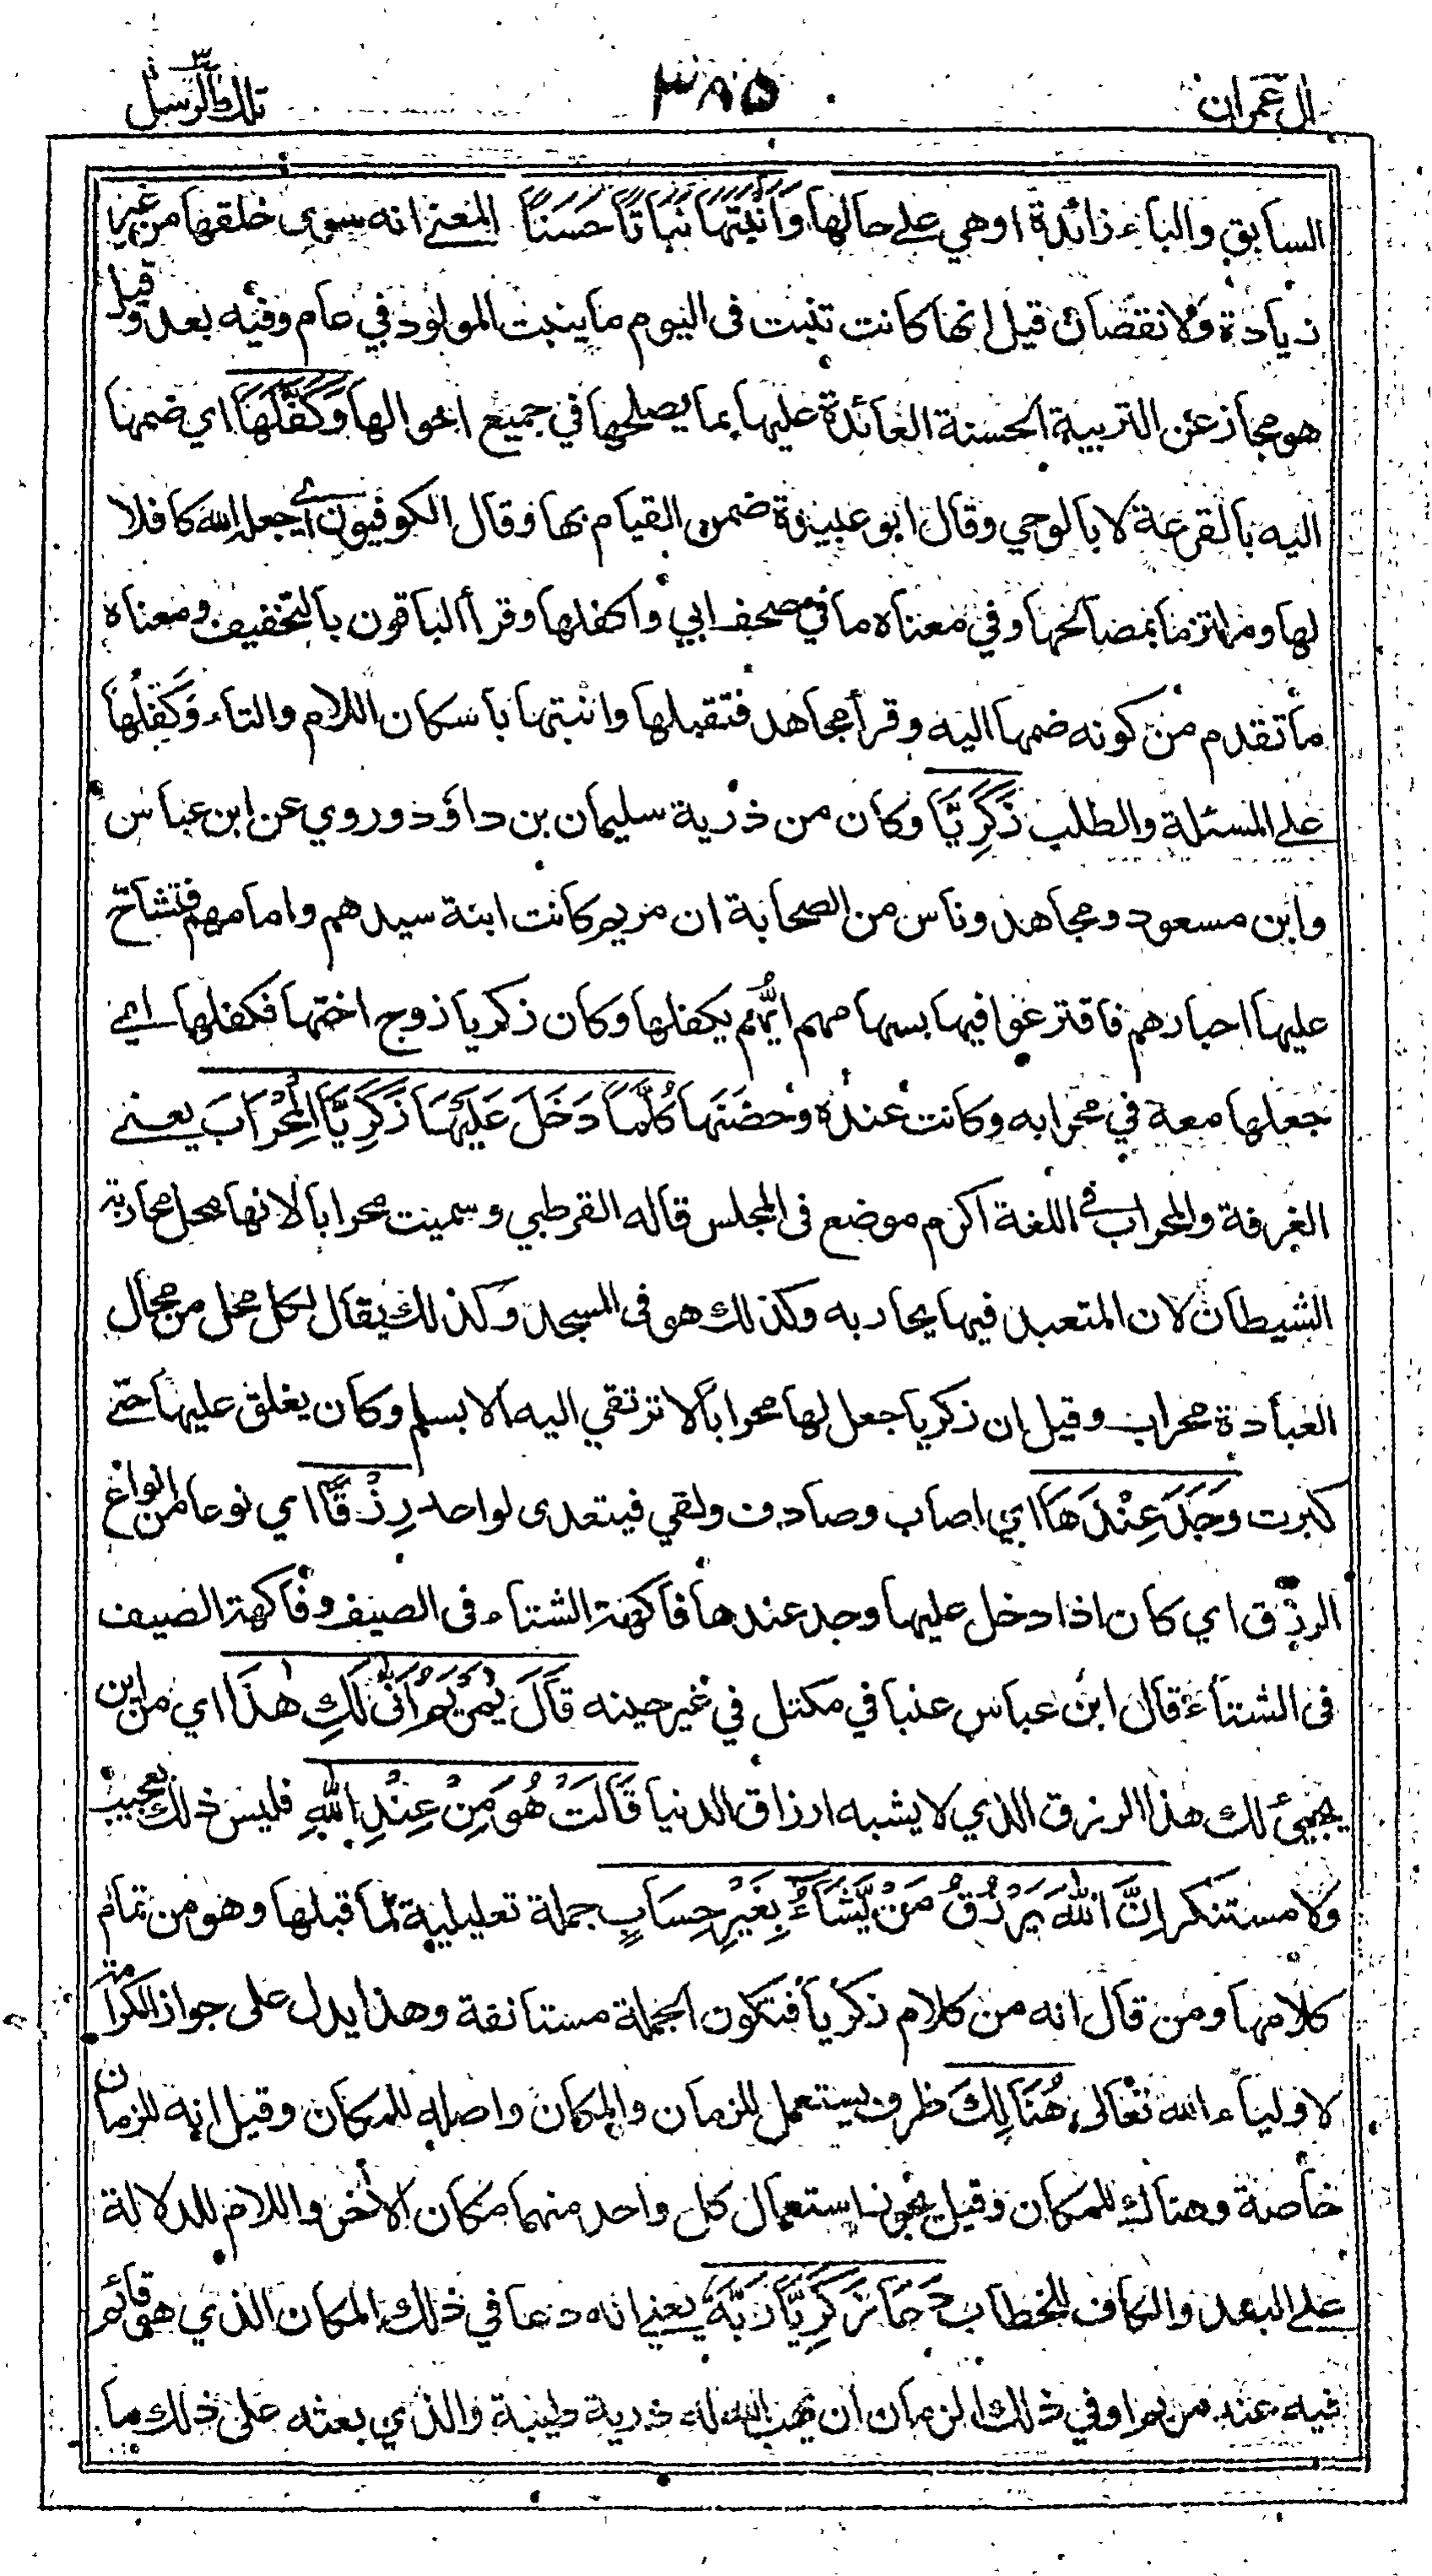 ال عمران
٣٨٥
تلك الرسل ٣
السابق والباء زائدة او هي على حالها وَاَنْبَتَهَا نَبَاتًا حَسَنًا المعنى انه سوى خلقها من غير
زيادة ولا نقصان قيل انها كانت تنبت فى اليوم ما ينبت المولود في عام وفيه بعد وقيل
هو مجاز عن التربية الحسنة العائدة عليها بما يصلحها في جميع احوالها وَكَفَّلَهَا اي ضمها
اليه بالقرعة لا بالوحي وقال ابو عبيدة ضمن القيام بها وقال الكوفيون اي جعله الله كافلا
لها وملتزما بمصالحها وفي معناه ما في مصحف ابي واكفلها وقرأ الباقون بالتخفيف ومعناه
ما تقدم من كونه ضمها اليه وقرأ مجاهد فتقبلها وانبتها باسكان اللام والتاء وَكَفِّلْهَا
على المسئلة والطلب زَكَرِيَّا وكان من ذرية سليمان بن داؤد وروي عن ابن عباس
وابن مسعود ومجاهد وناس من الصحابة ان مريم كانت ابنة سيدهم وامامهم فتشاح
عليها احبارهم فاقترعوا فيها بسهامهم ايُّهم يكفلها وكان زكريا زوج اختها فكفلها اي
جعلها معه في محرابه وكانت عنده وحضنتها كُلَّمَا دَخَلَ عَلَيْهَا زَكَرِيَّا الْمِحْرَابَ يعني
الغرفة والمحراب في اللغة اكرم موضع فى المجلس قاله القرطبي وسميت محرابا لانها محل محاربة
الشيطان لان المتعبد فيها يحاربه وكذلك هو فى المسجد وكذلك يقال لكل محل من محال
العبادة محراب وقيل ان زكريا جعل لها محرابا لا ترتقي اليه الا بسلم وكان يغلق عليها حتى
كبرت وَجَدَ عِنْدَهَا اي اصاب وصادف ولقي فيتعدى لواحد رِزْقًا اي نوعا من انواع
الرزق اي كان اذا دخل عليها وجد عندها فاكهة الشتاء فى الصيف وفاكهة الصيف
فى الشتاء قال ابن عباس عنبا في مكتل في غير حينه قَالَ يٰمَرْيَمُ اَنّٰى لَكِ هٰذَا اي من اين
يجيئ لك هذا الرزق الذي لا يشبه ارزاق الدنيا قَالَتْ هُوَ مِنْ عِنْدِ اللّٰهِ فليس ذلك بعجيب
ولا مستنكر اِنَّ اللّٰهَ يَرْزُقُ مَنْ يَّشَآءُ بِغَيْرِ حِسَابٍ جملة تعليلية لما قبلها وهو من تمام
كلامها ومن قال انه من كلام زكريا فتكون الجملة مستانفة وهذا يدل على جواز الكرامة
لاولياء الله تعالى هُنَالِكَ ظرف يستعمل للزمان والمكان واصله للمكان وقيل انه للزمان
خاصة وهناك للمكان وقيل يجوز استعمال كل واحد منهما مكان الأخر واللام للدلالة
على البعد والكاف للخطاب دَعَا زَكَرِيَّا رَبَّهٗ يعني انه دعا في ذلك المكان الذي هو قائم
فيه عند مريم او في ذلك الزمان ان يهب الله له ذرية طيبة والذي بعثه على ذلك ما